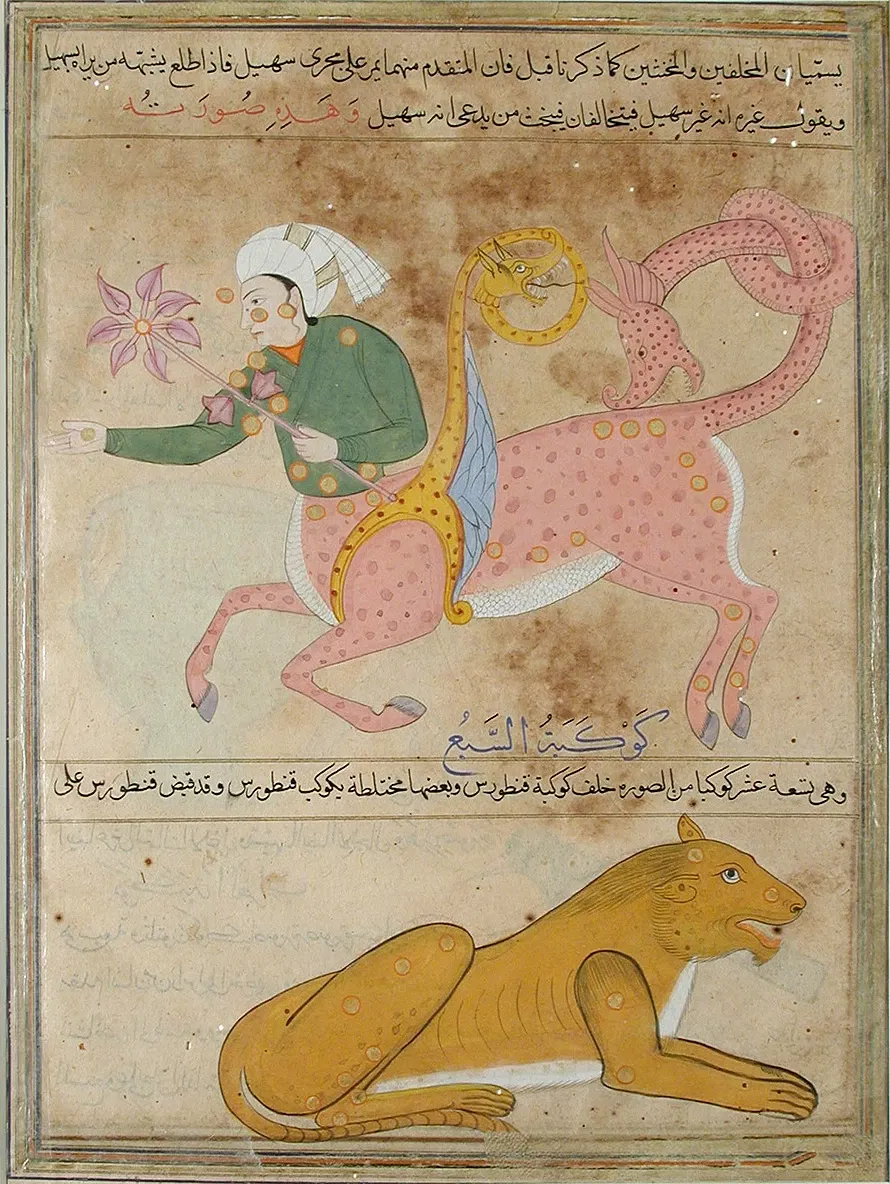 يسمّيان المحلفين والمخنثين كما ذكرنا قبل فان المتقدم منهما يمر على مجرى سهيل فاذا طلع يشبهه من يراه بسهيل
ويقول غيره انه غير سهيل فيتخالفان فيخنث من يدعى انه سهيل وَهَذِهِ صُورَتُه
كَوْكَبَةُ السَّبُع
وهى تسعة عشر كوكبا من الصوره خلف كوكبة قنطورس وبعضها مختلطة بكوكب قنطورس وقد قبض قنطورس على